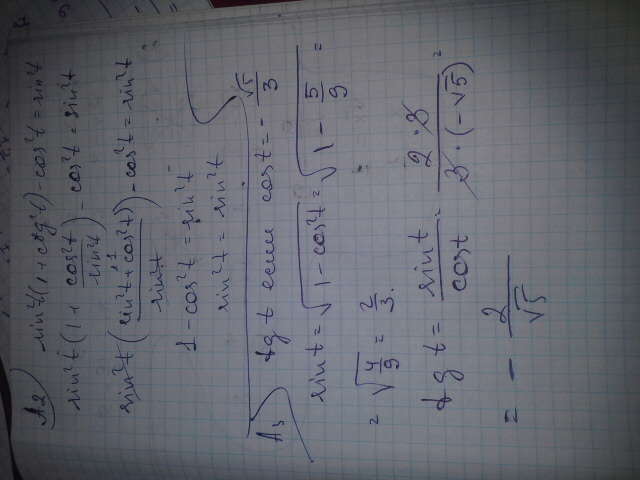 A2) sin²t(1 + ctg²t) - cos²t = sin²t
sin²t (1 + cos²t/sin²t) - cos²t = sin²t
sin²t ((sin²t + cos²t)/sin²t) - cos²t = sin²t
1 - cos²t = sin²t
sin²t = sin²t
A3) tg t если cos t = - √5/3
sin t = √(1 - cos²t) = √(1 - 5/9) =
= √(4/9) = 2/3.
tg t = sin t/cos t = 2·3/3·(-√5) =
= - 2/√5